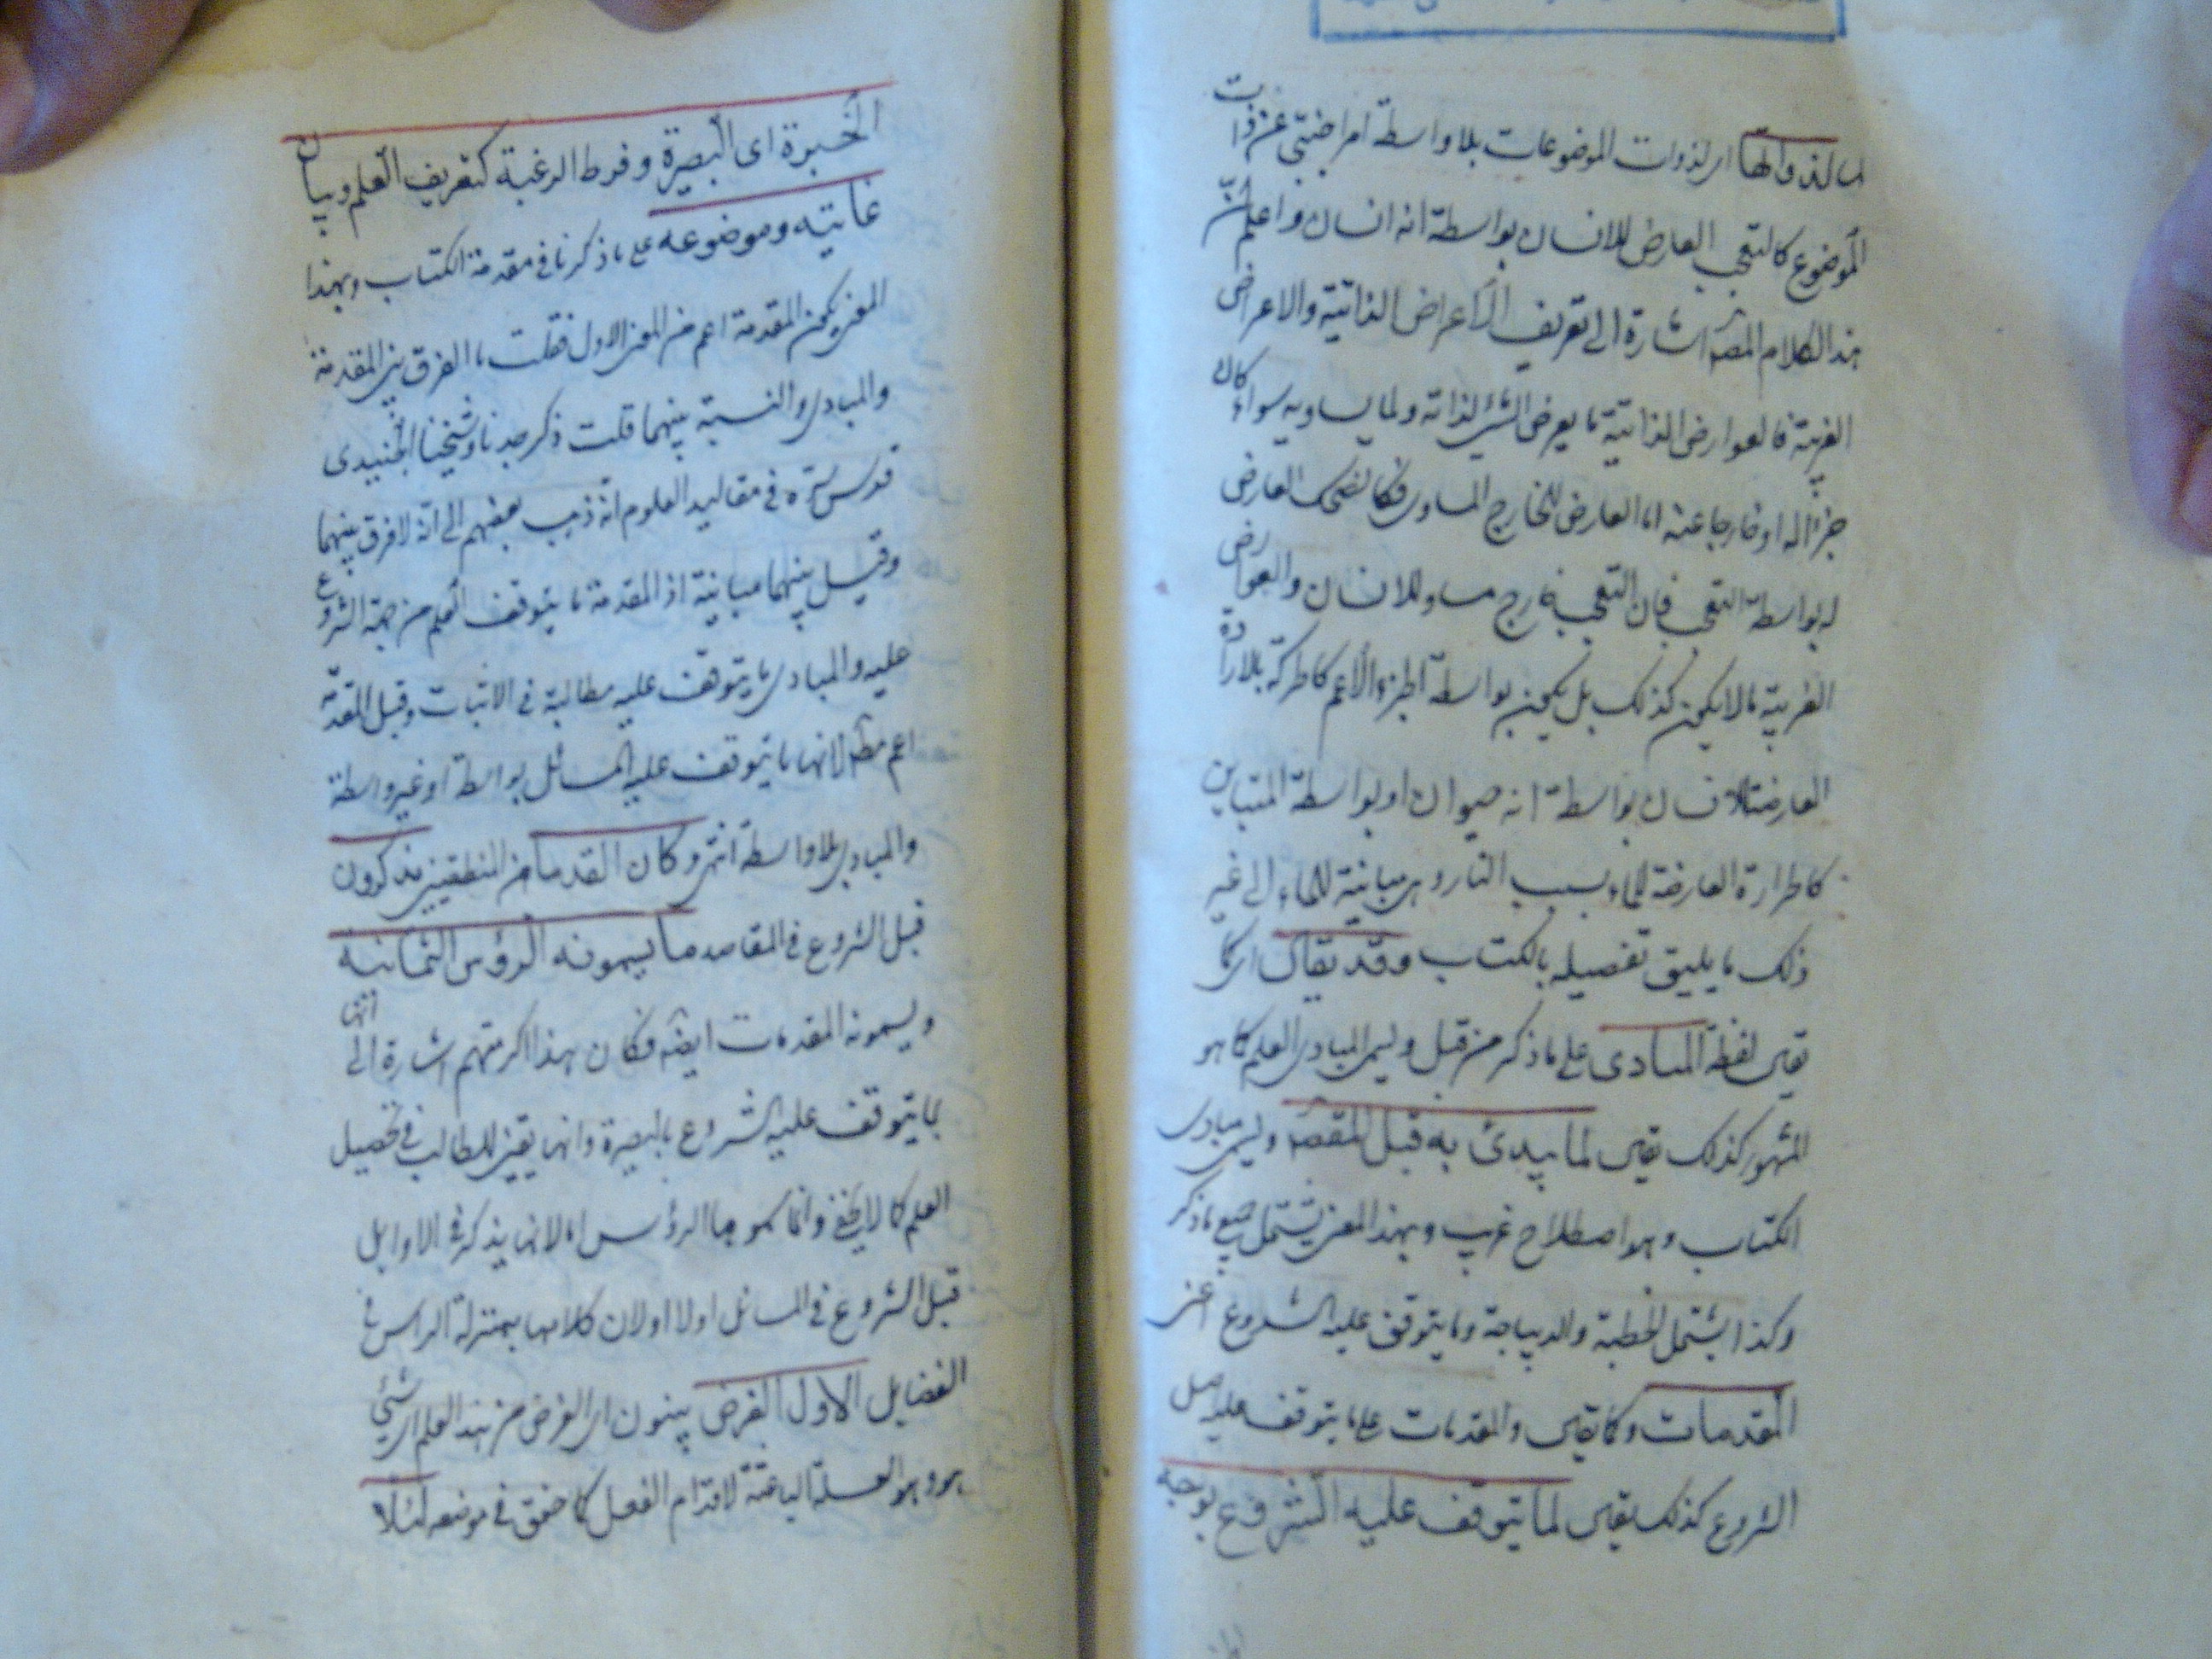 لها لذواتها اى لذوات الموضوعات بلا واسطة امر اجنبى عن ذات
الموضوع كالتعجب العارض للانسان بواسطة انه انسان واعلم ان
هذا الكلام المصـ اشارة الى تعريف الأعراض الذاتية والاعراض
الغريبة فالعوارض الذاتية ما يعرض الشئ لذاته ولما يساويه سواء كان
جزءاً له او خارجا عنه اما العارض للخارج المساوى فكالضحك العارض
له بواسطة التعجب فان التعجب خارج مساو للانسان والعوارض
الغريبة ما لا يكون كذلك بل يكون بواسطة الجزء الأعم كالحركة بالارادة
العارضة للانسان بواسطة انه حيوان او بواسطة المتباين
كالحرارة العارضة للماء بسبب النار وهى مباينة للماء الى غير
ذلك ما يليق تفصيله بالكتاب وقد يقال اى كما
يقال لفظ المبادى على ما ذكر من قبل وليس المبادى العلم كما هو
المشهور كذلك يقال لما يبدئ به قبل المقصـ وليسمى مبادى
الكتاب وهو اصطلاح غريب وبهذا المعنى يشتمل جميع ما ذكر
وكذا يشتمل الخطبة والديباجة وما يتوقف عليه الشروع اعنى
المقدمات وكما يقال والمقدمات على ما يتوقف عليه اصل
الشروع كذلك يقال لما يتوقف عليه الشروع بوجه
الخبرة اى البصيرة وفرط الرغبة كتعريف العلم وبيان
غايته وموضوعه على ما ذكرنا فى مقدمة الكتاب وبهذا
المعنى يكون المقدمة اعم من المعنى الاول فقلت ما الفرق بين المقدمة
والمبادى والنسبة بينهما قلت ذكر جدنا وشيخنا الجنيدى
قدس سره فى مقاليد العلوم انه ذهب بعضهم الى انه لا فرق بينهما
وقيل بينهما مباينة اذ المقدمة ما يتوقف العلم من جهة الشروع
عليه والمبادى ما يتوقف عليه مطالبة فى الاثبات وقيل المقدمة
اعم مطـ لانها ما يتوقف عليه المسائل بواسطة او غير واسطة
والمبادى بلا واسطة انتهى وكان القدماء من المنطقيين يذكرون
قبل الشروع فى المقاصد ما يسمونه الرؤس الثمانية
ويسمونه المقدمات ايضـ فكان هذا اكر منهم اشارة الى انها
مما يتوقف عليه الشروع بالبصيرة وانها يعين للطالب فى تحصيل
العلم كما لا يخفى وانما سموها الرؤس اما لانها يذكر فى الاوايل
قبل الشروع فى المسائل اولا اولان كلامها بمنزلة الراس فى
الفضايل الاول الغرض يعنون اى الغرض من هذا العلم اى شئ
هو وهو العلة الباعثة لاقدام الفعل كما حقق فى موضعه لئلا